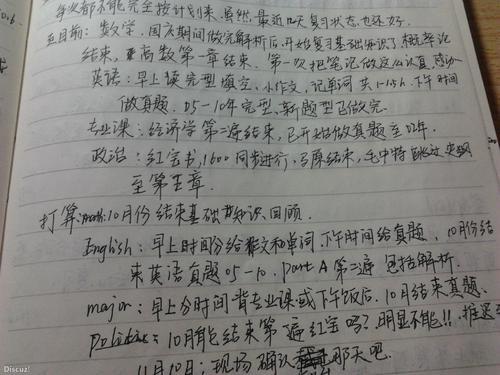 年次都不能完全按计划来.虽然,最近几天复习状态也还好.
至目前:数学,国庆期间做完解析后,开始复习基础知识了.概率论
结束,高数第一章结束.第一次把笔记做这么认真,
英语:早上读完型填空、小作文,记单词 共1-1.5h.下午时间
做真题.05-10年完型、新题型已做完.
专业课:经济学第二遍结束,已开始做真题至02年.
政治:红宝书,1600同步进行,马原结束,毛中特
至第五章.
打算:math:10月份结束基础知识回顾.
English:早上时间份给作文和单词,下午时间给真题,10月份结
束英语真题05-10.Part A第二遍 包括解析.
major:早上分时间背专业课或下午饭后.10月结束真题.
Politics:10月能结束第一遍红宝吗?明显不能!!.推迟
11月10:现场确认 那天吧.
Discuz!